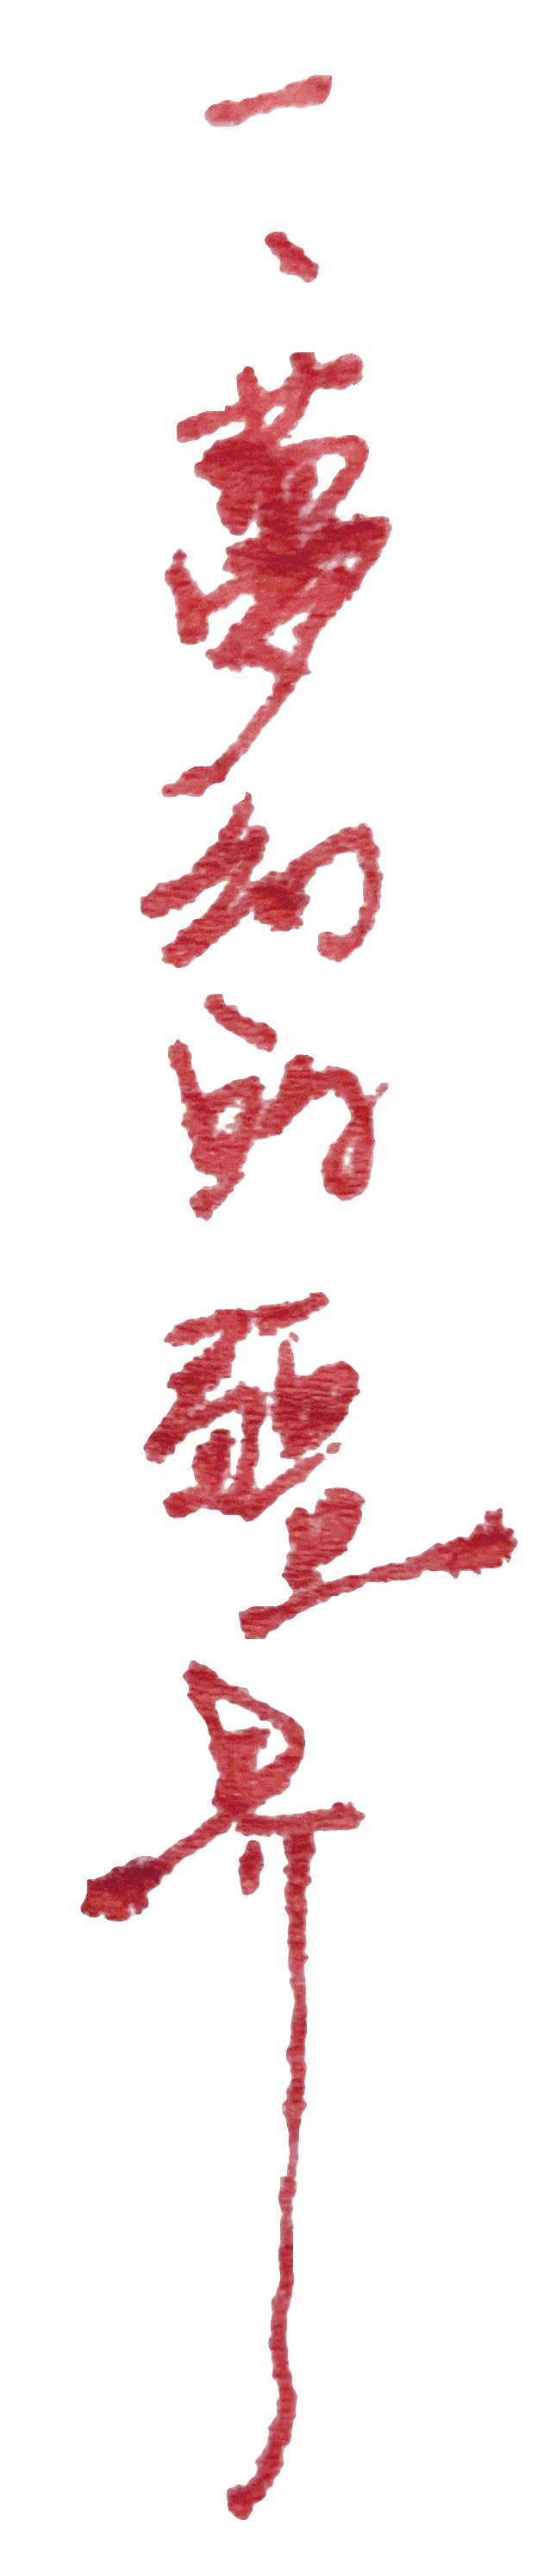 一、夢幻的聖界